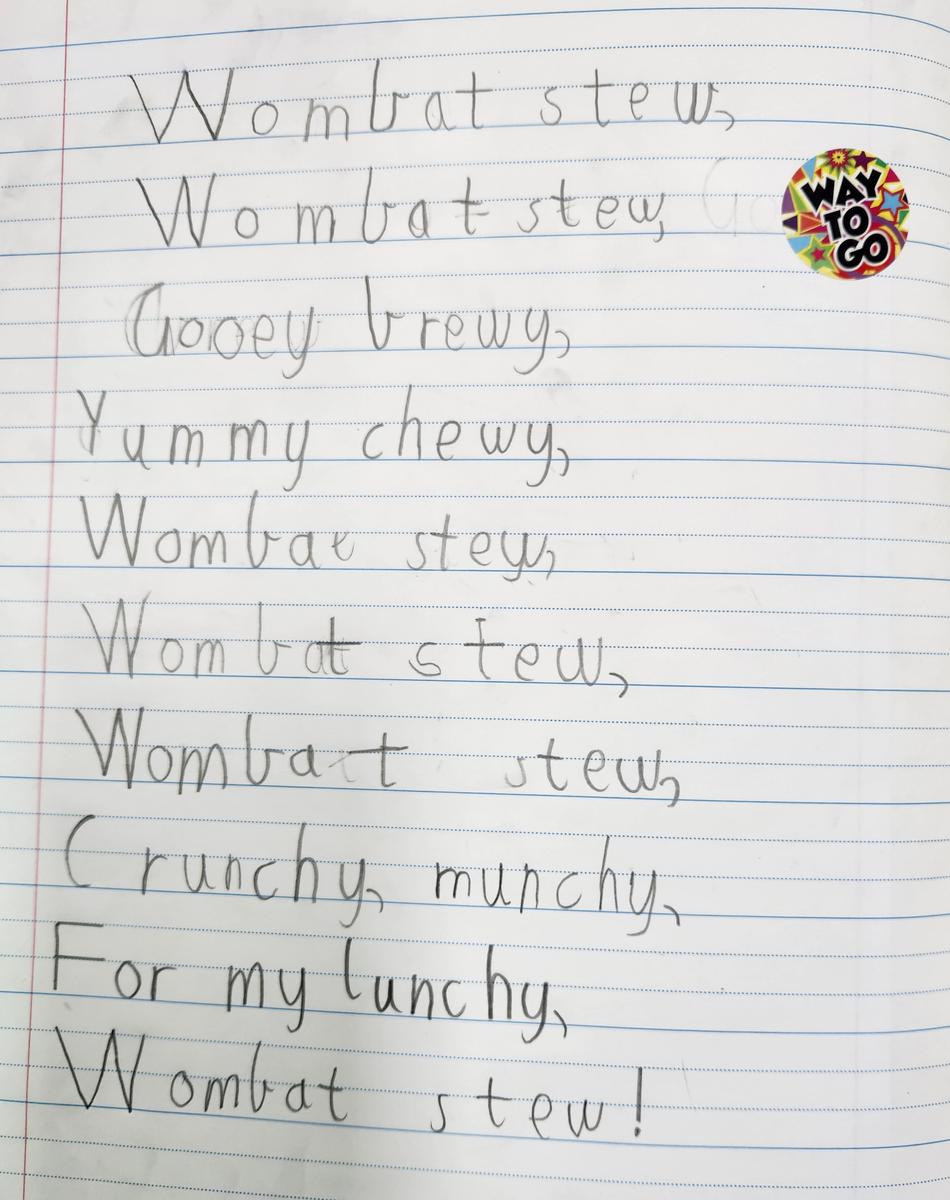 Wombat stew,
Wombat stew,
WAY
TO
GO
Gooey brewy,
Yummy chewy,
Wombat stew,
Wombat stew,
Wombat stew,
Crunchy, munchy,
For my lunchy,
Wombat stew!